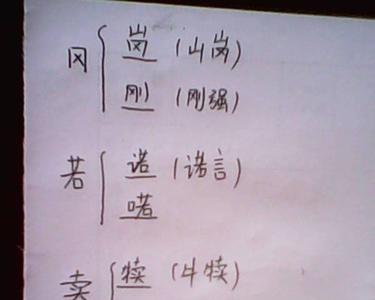 冈 岗 (山岗)
刚 (刚强)
若 诺 (诺言)
喏
卖 犊 (牛犊)